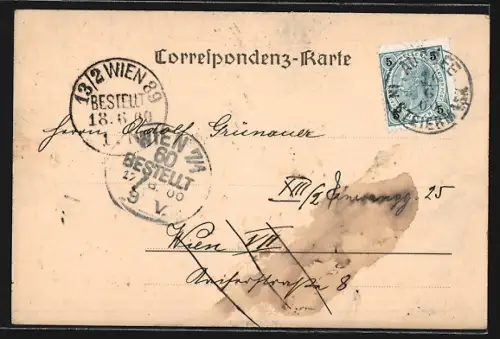 Correspondenz-Karte
5 5
5 5
IN STEIERMARK
13/2 WIEN 89
BESTELLT
18.6.00
WIEN 7/1
60
BESTELLT
17.6.00
9 V.
Herrn Adolf Grünauer
XIII/2 25
Wien VII
Kaiserstraße 8